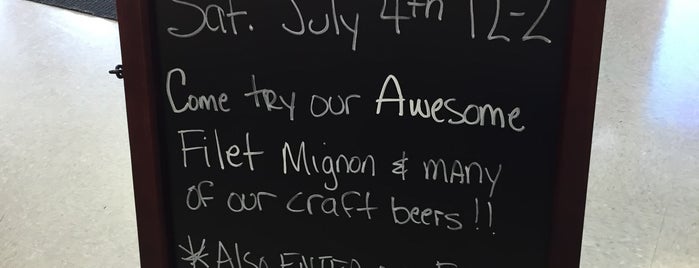 Sat. July 4th 12-2
Come try our Awesome
Filet Mignon & many
of our craft beers!!
*Also ENTER